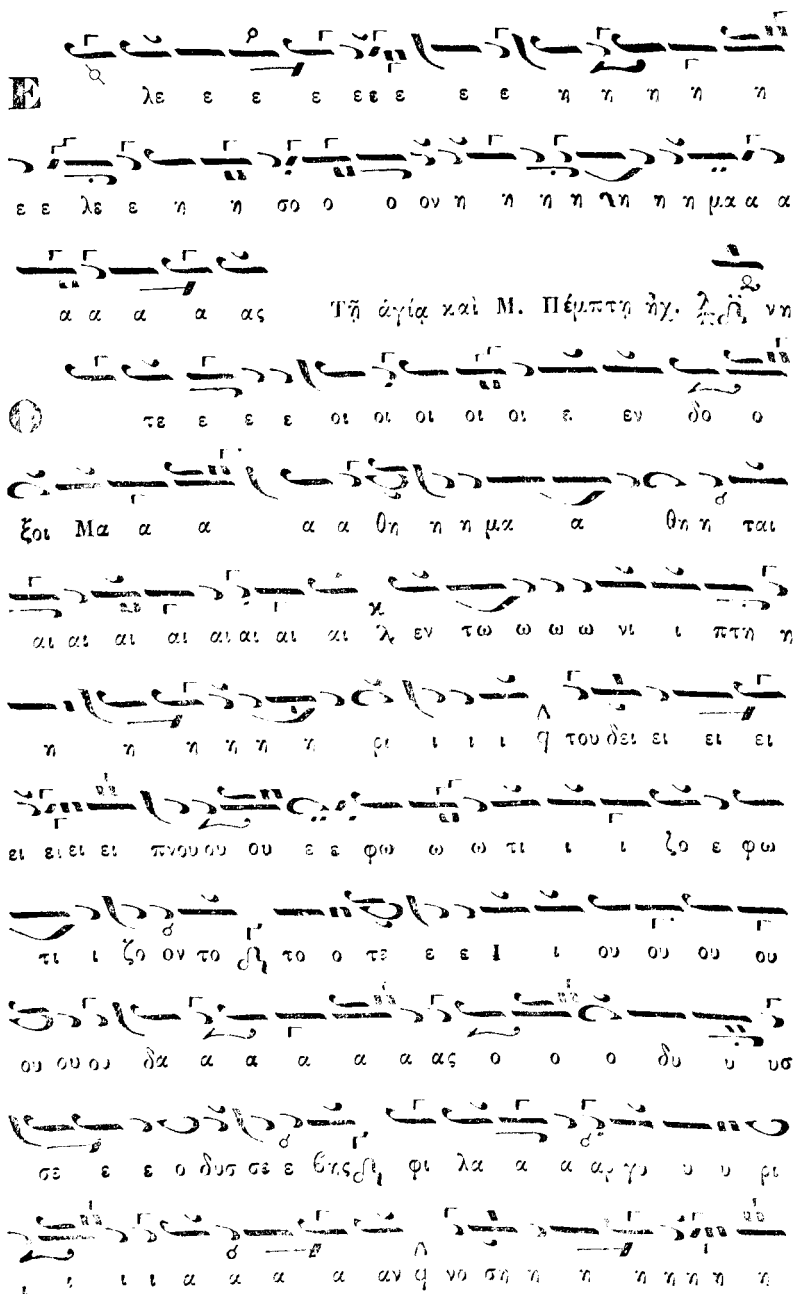 Ε λε ε ε ε ε ε ε ε ε η η η η η
ε ε λε ε η η σο ο ο ον η η η η η η η μα α α
α α α α ας Τῇ ἁγίᾳ καὶ Μ. Πέμπτῃ ἦχ. νη
Ο τε ε ε ε οι οι οι οι οι ε εν δο ο
ξοι Μα α α α α θη η η μα α θη η ται
αι αι αι αι αι αι αι αι εν τω ω ω ω νι ι πτη η
η η η η η η ρι ι ι ι του δει ει ει ει
ει ει ει ει πνου ου ου ε ε φω ω ω τι ι ι ζο ε φω
τι ι ζο ον το το ο τε ε ε Ι ι ου ου ου ου
ου ου ου δα α α α α α ας ο ο ο δυ υ υσ
σε ε ε ο δυσ σε ε βης φι λα α α αρ γυ υ υ ρι
ι ι ι ι α α α α αν νο ση η η η η η η η